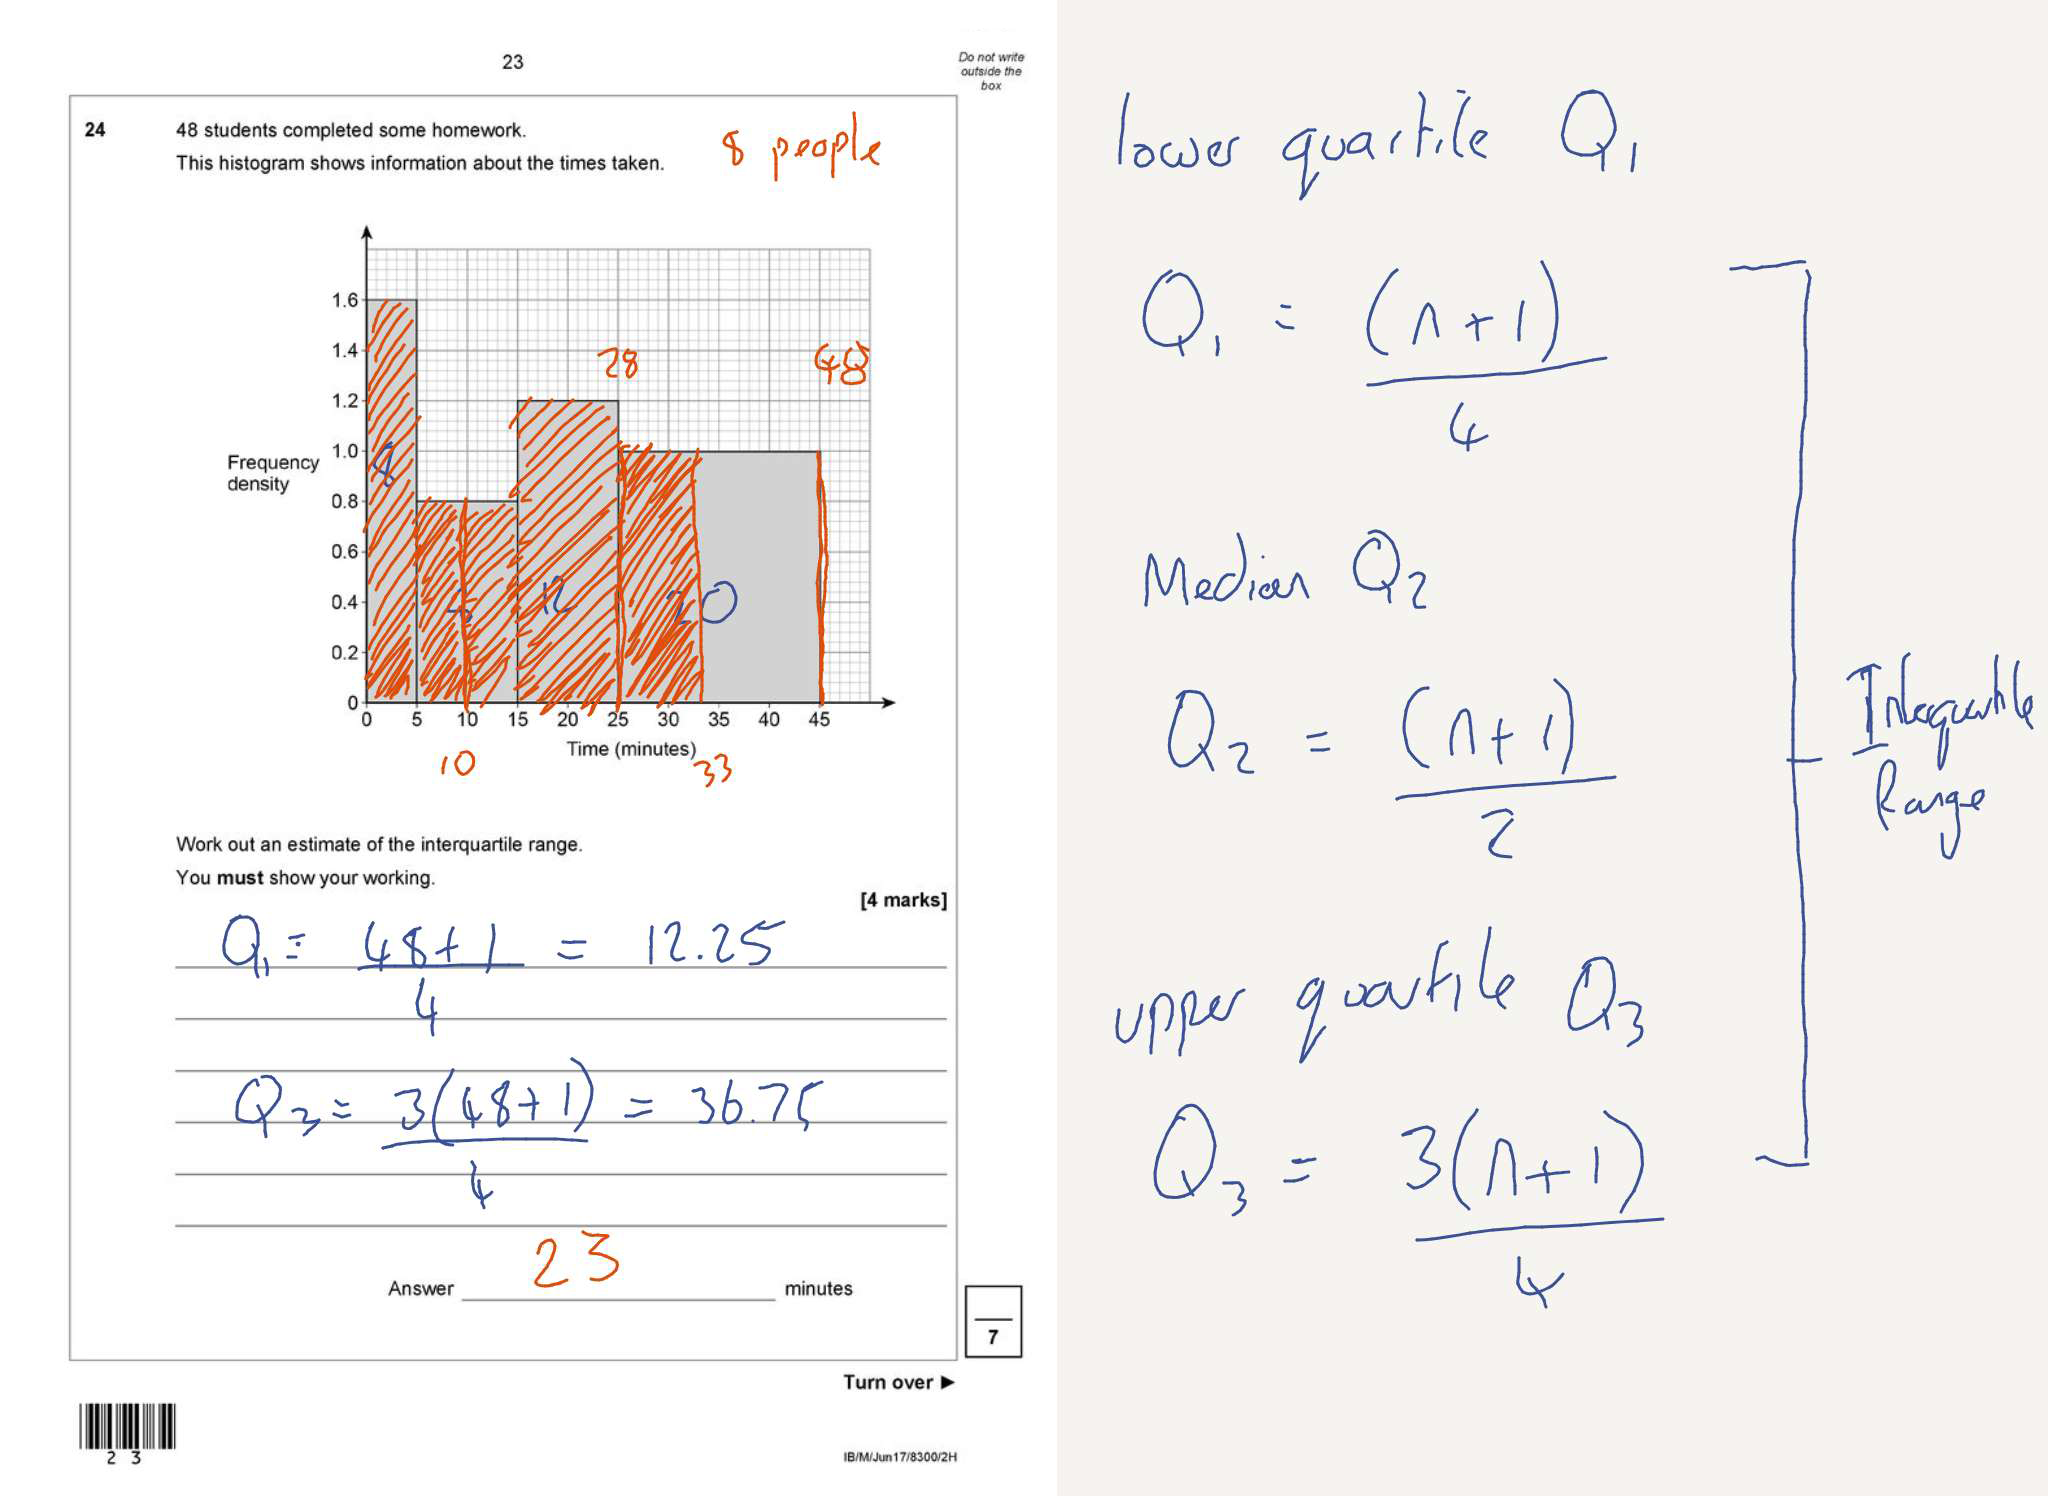 23
Do not write
outside the
box
24 48 students completed some homework.
This histogram shows information about the times taken.
8 people
1.6
1.4
1.2
1.0
0.8
0.6
0.4
0.2
0
Frequency
density
28
48
8
12
20
0 5 10 15 20 25 30 35 40 45
Time (minutes)
10
33
Work out an estimate of the interquartile range.
You must show your working.
[4 marks]
Q₁ = 48+1 = 12.25
4
Q₃ = 3(48+1) = 36.75
4
23
Answer minutes
7
Turn over ►
2 3
IB/M/Jun17/8300/2H
lower quartile Q₁
Q₁ = (n+1)
4
Median Q₂
Q₂ = (n+1)
2
upper quartile Q₃
Q₃ = 3(n+1)
4
Interquartile
Range